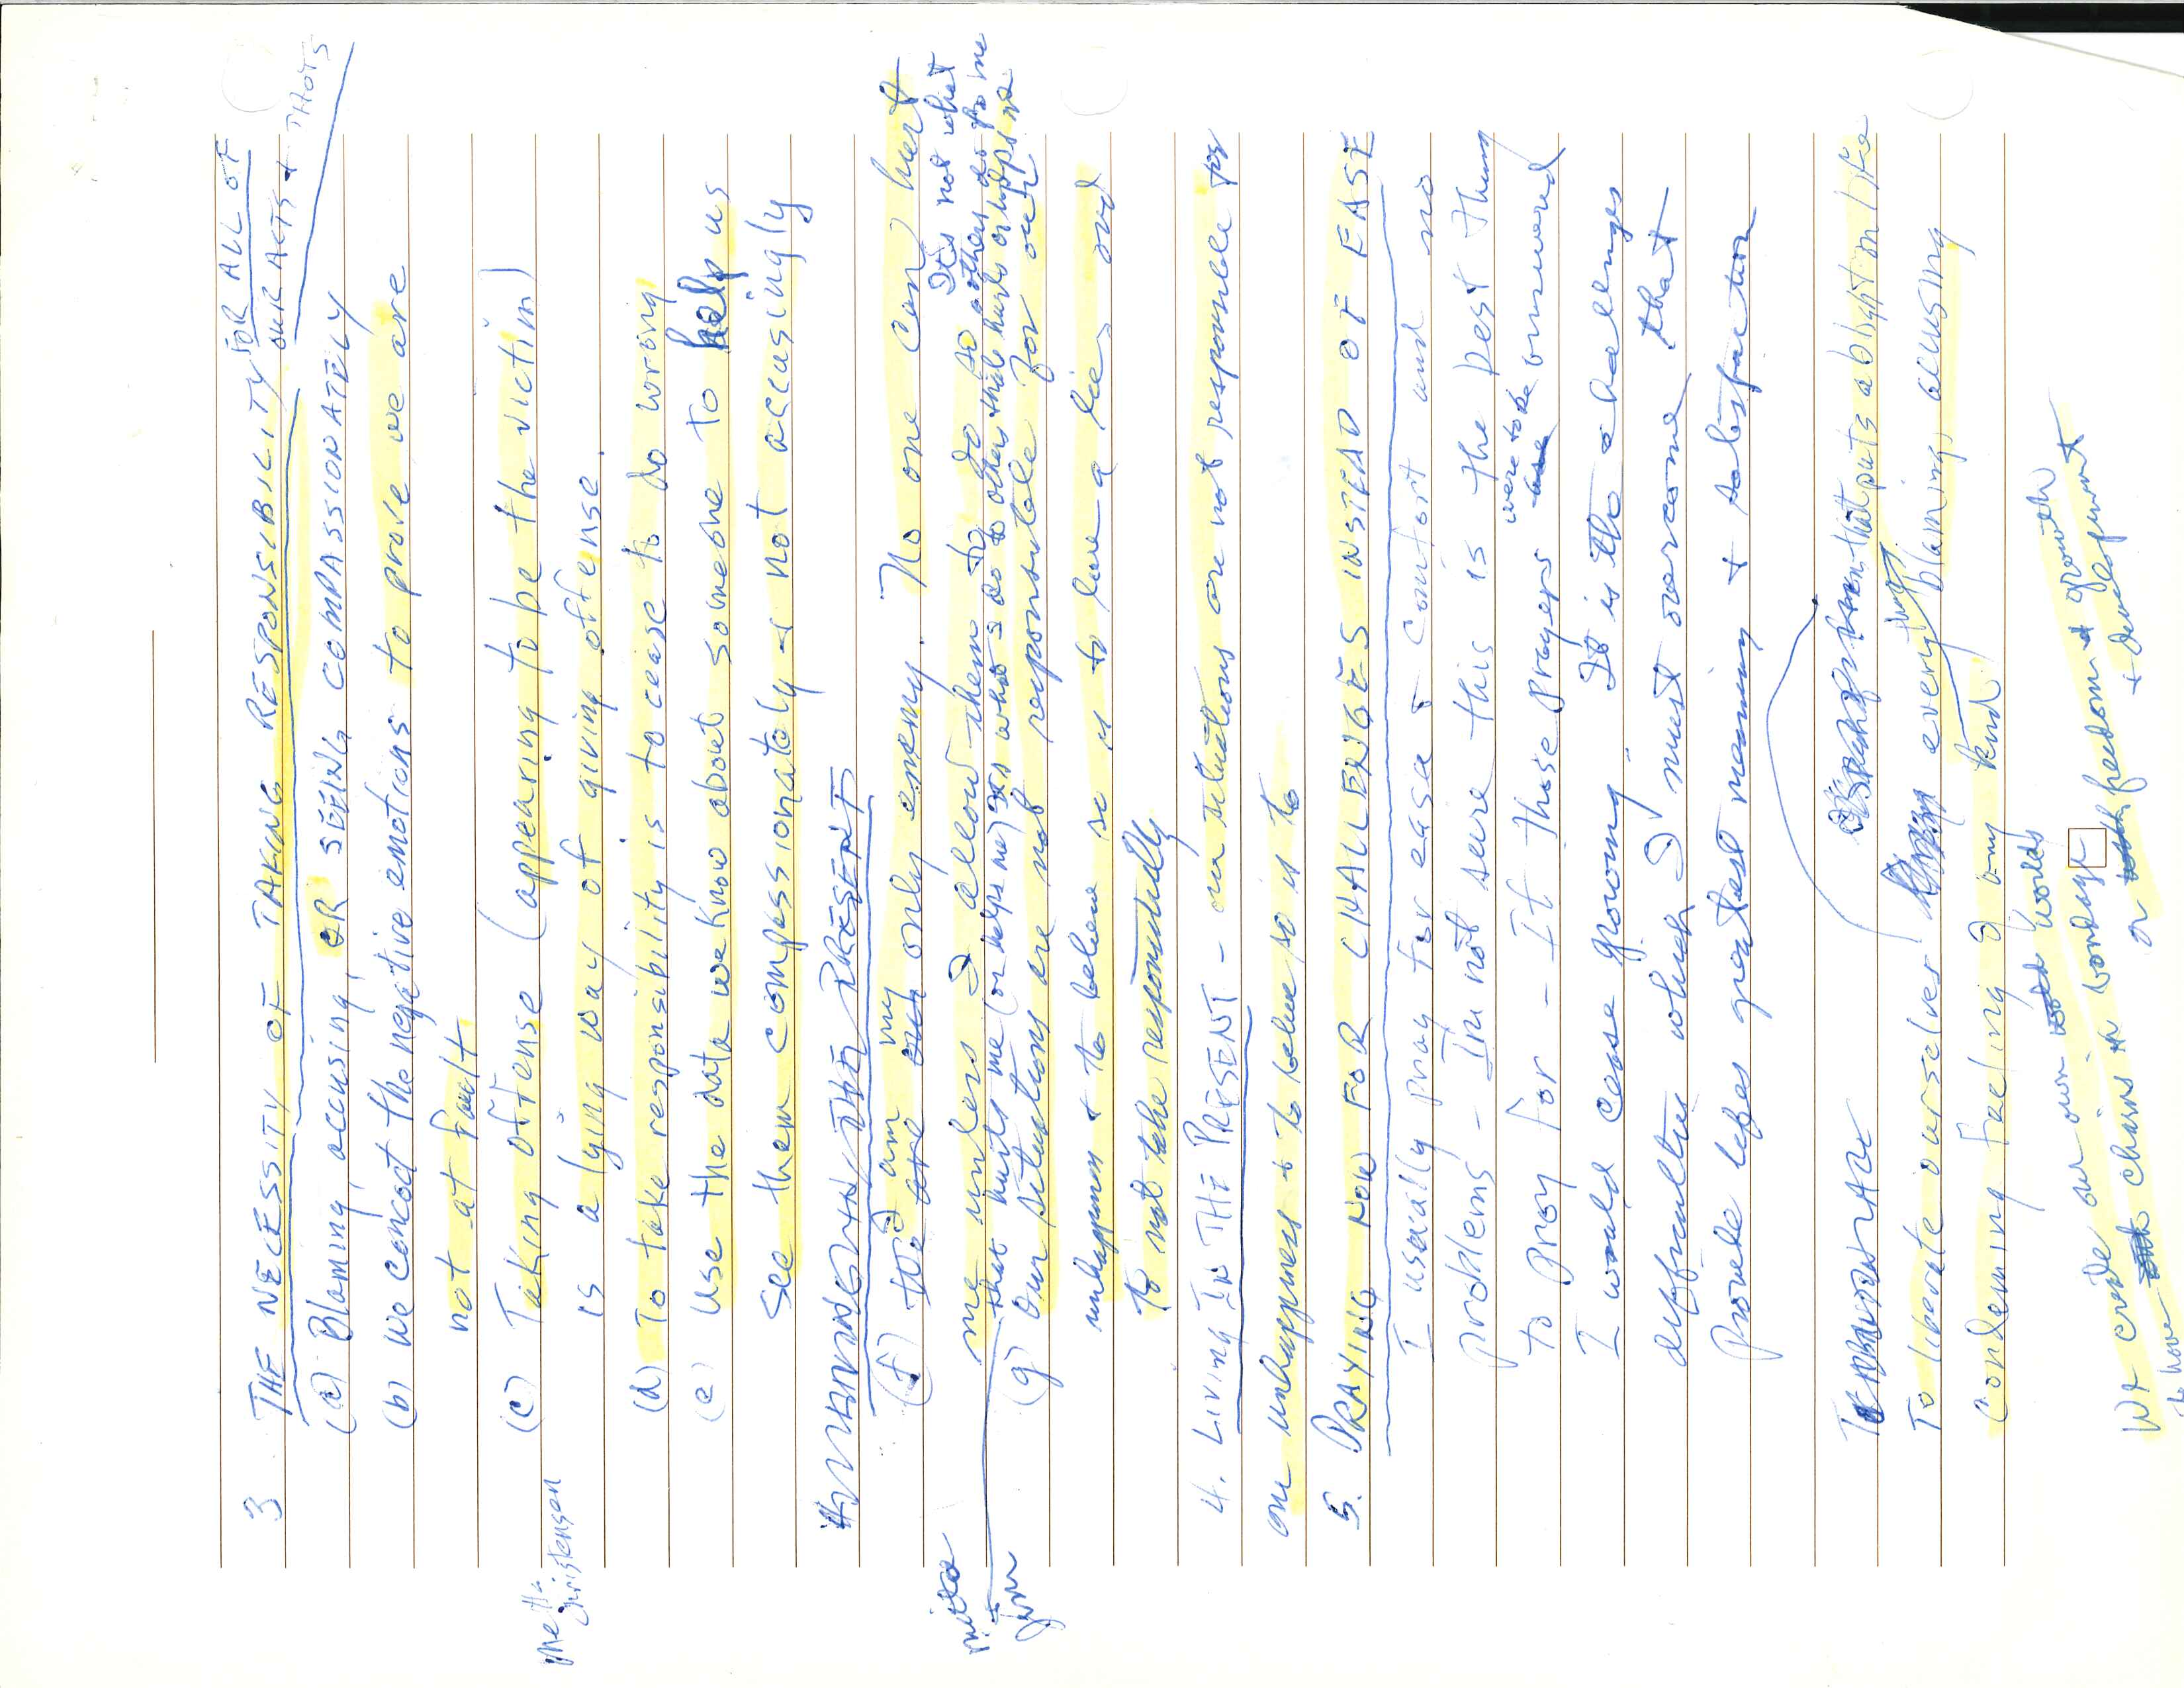 3 THE NECESSITY OF TAKING RESPONSIBILITY FOR ALL OF
OUR ACTS + THOTS
(a) Blaming, accusing, OR SEEING COMPASSIONATELY
(b) we concoct the negative emotions to prove we are
not at fault
(c) Taking offense (appearing to be the victim)
is a lying way of giving offense.
(d) To take responsibility is to cease to do wrong
(e) Use the data we know about someone to help us
see them compassionately - not accusingly
(f) I am my only enemy. No one can hurt
me unless I allow them to do so It's not what others do to me
that hurts me (or helps me) It's what I do to others that hurts or helps me
(g) Our situations are not responsible for our
unhappiness + to believe so is to live a lie, and
to not take responsibility
4. LIVING IN THE PRESENT - our situations are not responsible for
our unhappiness + to believe so is to
5. PRAYING NOW FOR CHALLENGES INSTEAD OF EASE
I usually pray for ease + comfort and no
problems - I'm not sure this is the best thing
to pray for - If those prayers were to be answered
I would cease growing. It is the challenges
difficulties which I must overcome that
provide life's greatest meaning + satisfaction
To liberate ourselves everything that puts a blight on life
Condemning feeling of any kind blaming, accusing
We create our own worlds
to have chains + bondage or freedom + growth
+ development